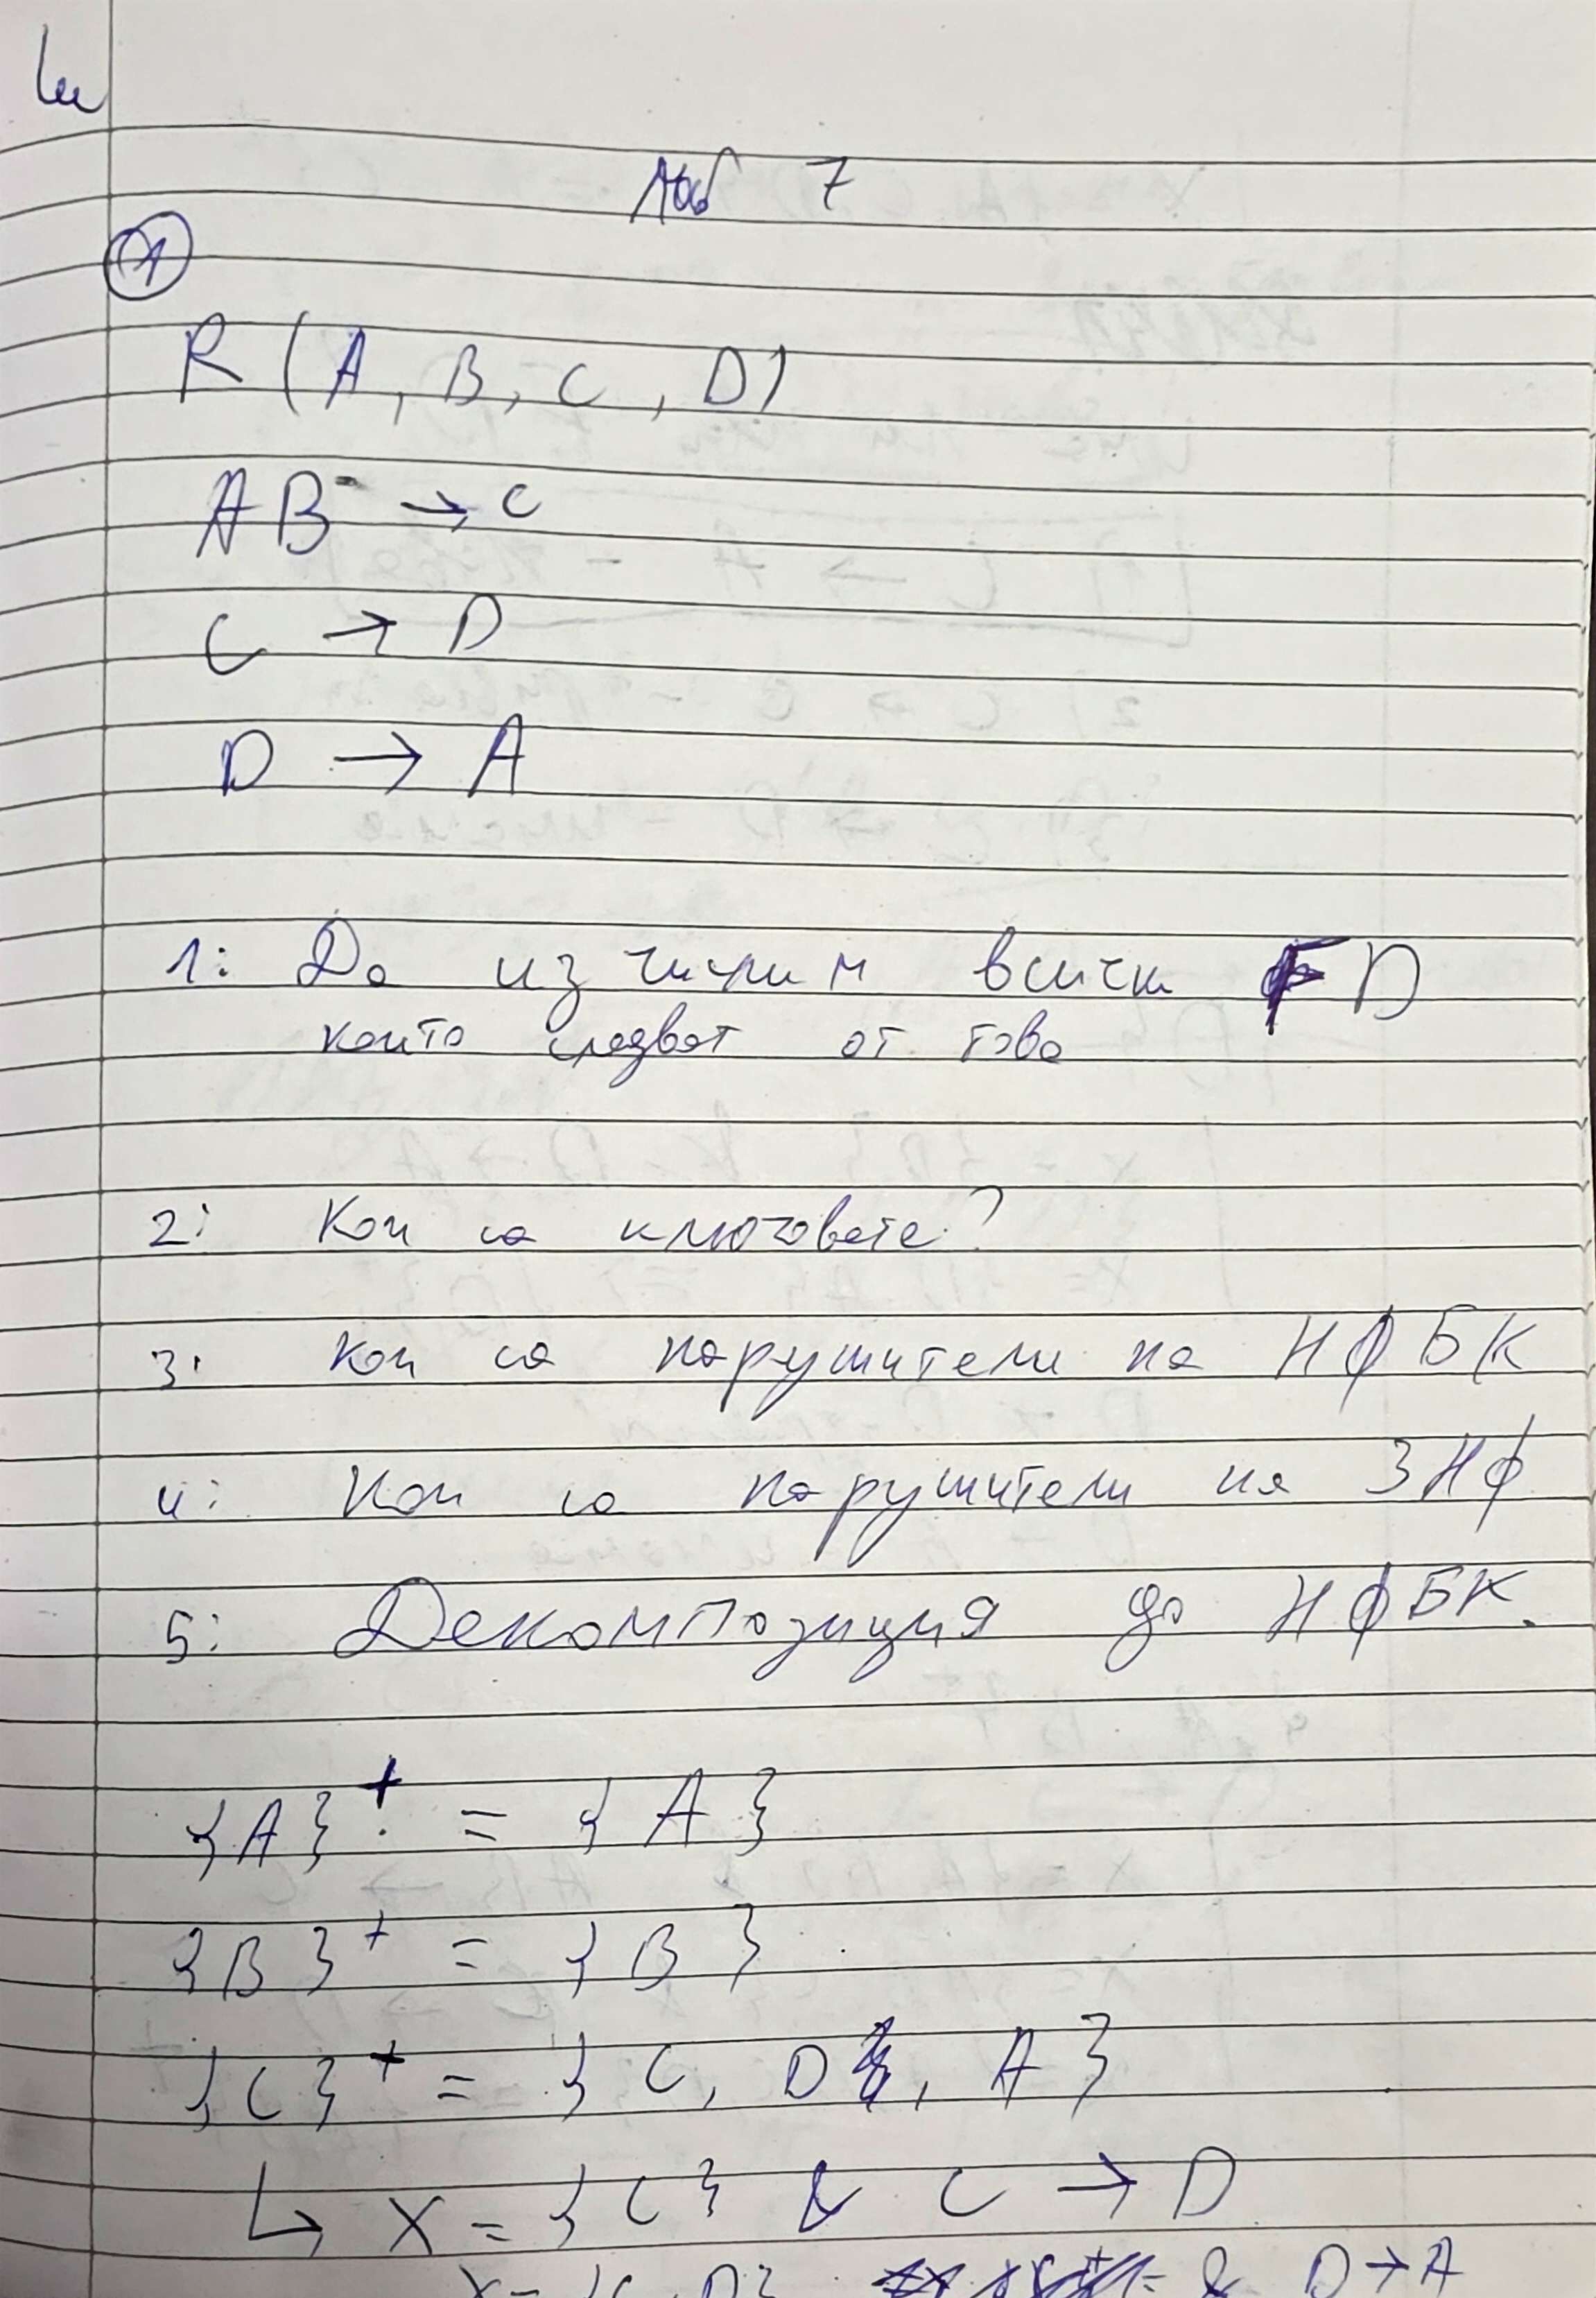 Лаб 7
1
R (A, B, C, D)
AB → C
C → D
D → A
1: Да изчислим всички FD
които следват от това
2: Кои са ключовете?
3: Кои са нарушители на НФБК
4: Кои са нарушители на 3НФ
5: Декомпозиция до НФБК.
{A}+ = {A}
{B}+ = {B}
{C}+ = {C, D, A}
↳ X = {C} & C → D
X = {C, D} & D → A